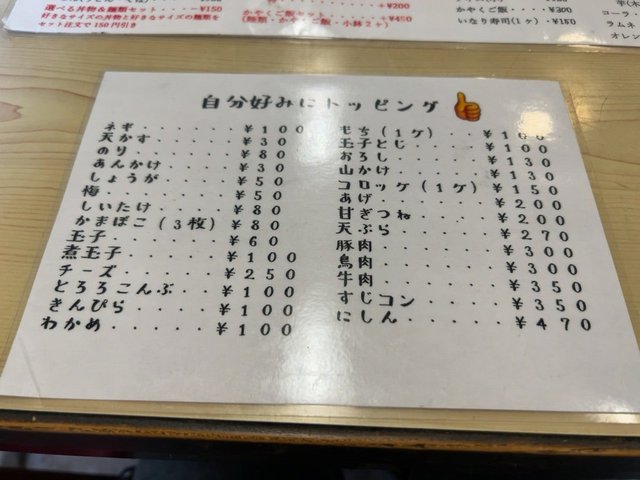 選べる丼物&麺類セット・・・・¥150
好きなサイズの丼物と好きなサイズの麺類を
セット注文で150円引き
+¥200
かやくご飯セット
(麺類・かやくご飯・小鉢2ヶ)
+¥450
かやくご飯・・・・¥300
いなり寿司(1ヶ)・・¥150
コーラ
ラムネ
オレン
自分好みにトッピング👍
ネギ・・・・・・¥100
天かす・・・・・¥30
のり・・・・・・¥80
あんかけ・・・・¥30
しょうが・・・・¥50
梅・・・・・・・¥50
しいたけ・・・・¥80
かまぼこ(3枚)¥80
玉子・・・・・・¥60
煮玉子・・・・・¥100
チーズ・・・・・¥250
とろろこんぶ・・¥100
きんぴら・・・・¥100
わかめ・・・・・¥100
もち(1ケ)・・¥100
玉子とじ・・・・¥100
おろし・・・・・¥130
山かけ・・・・・¥130
コロッケ(1ケ)¥150
あげ・・・・・・¥200
甘ぎつね・・・・¥200
天ぷら・・・・・¥270
豚肉・・・・・・¥300
鳥肉・・・・・・¥300
牛肉・・・・・・¥350
すじコン・・・・¥350
にしん・・・・・¥470